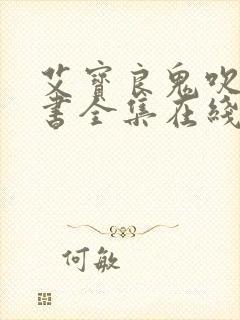 艾寳良鬼吹
書全集在綫
何敏